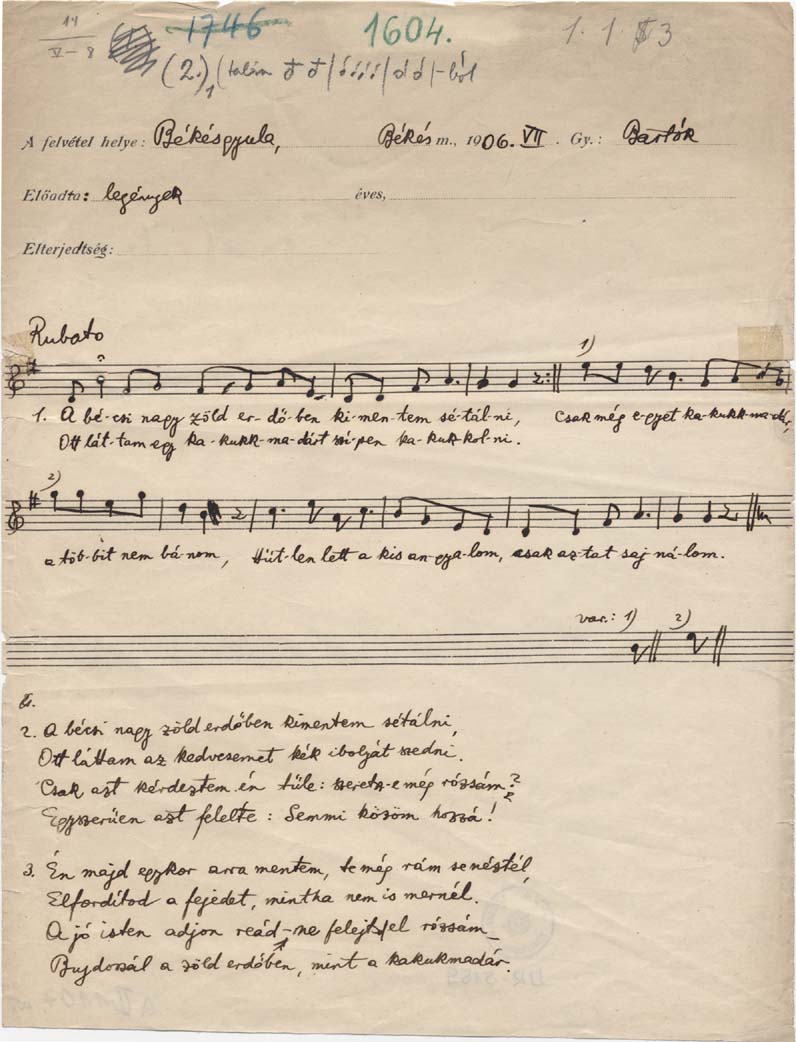 11 1746 1604. 1. 1. 3
V-8 (2.) (talán | | -ból
A felvétel helye: Békésgyula, Békés m., 1906. VII. Gy.: Bartók
Előadta: legények éves,
Elterjedtség:
Rubato
1)
1. A bé-csi nagy zöld er-dő-ben ki-men-tem sé-tál-ni, Csak még e-gyet ka-kukk-ma-dár,
Ott lát-tam egy ka-kukk-ma-dárt szé-pen ka-kuk-kol-ni.
2)
a töb-bit nem bá-nom, Hűt-len lett a kis an-gya-lom, csak az-tat saj-ná-lom.
var.: 1) 2)
2. A bécsi nagy zöld erdőben kimentem sétálni,
Ott láttam az kedvesemet kék ibolyát szedni.
Csak azt kérdeztem én tüle: szeretsz-e még rózsám?
Egyszerüen azt felelte: Semmi közöm hozzá!
3. Én majd egykor arra mentem, te még rám se néztél,
Elfordítod a fejedet, mintha nem is mernél.
A jó isten adjon reád-ne felejtsel rózsám
Bujdossál a zöld erdőben, mint a kakukmadár.